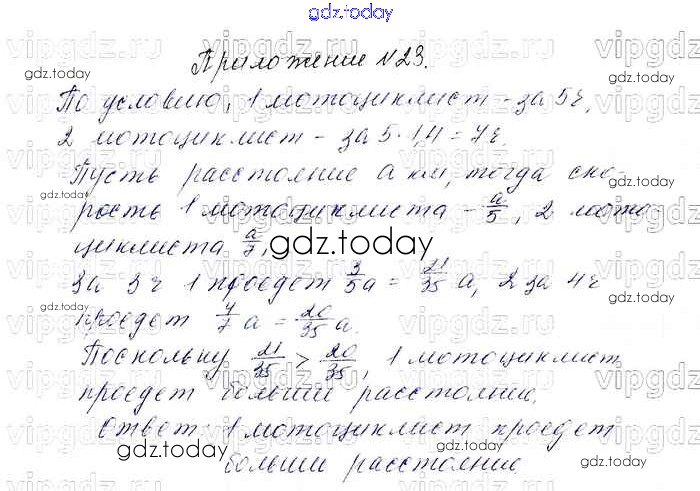 gdz.today
Приложение №23.
По условию, 1 мотоциклист - за 5 ч,
2 мотоциклист - за 5·1,4=7 ч.
Пусть расстояние a км, тогда ско-
рость 1 мотоциклиста - a/5, 2 мото-
циклиста a/7,
За 3 ч 1 проедет 3/5 a = 21/35 a, 2 за 4 ч
проедет 4/7 a = 20/35 a.
Поскольку 21/35 > 20/35, 1 мотоциклист
проедет больши расстояние.
Ответ: 1 мотоциклист проедет
больши расстояние
gdz.today